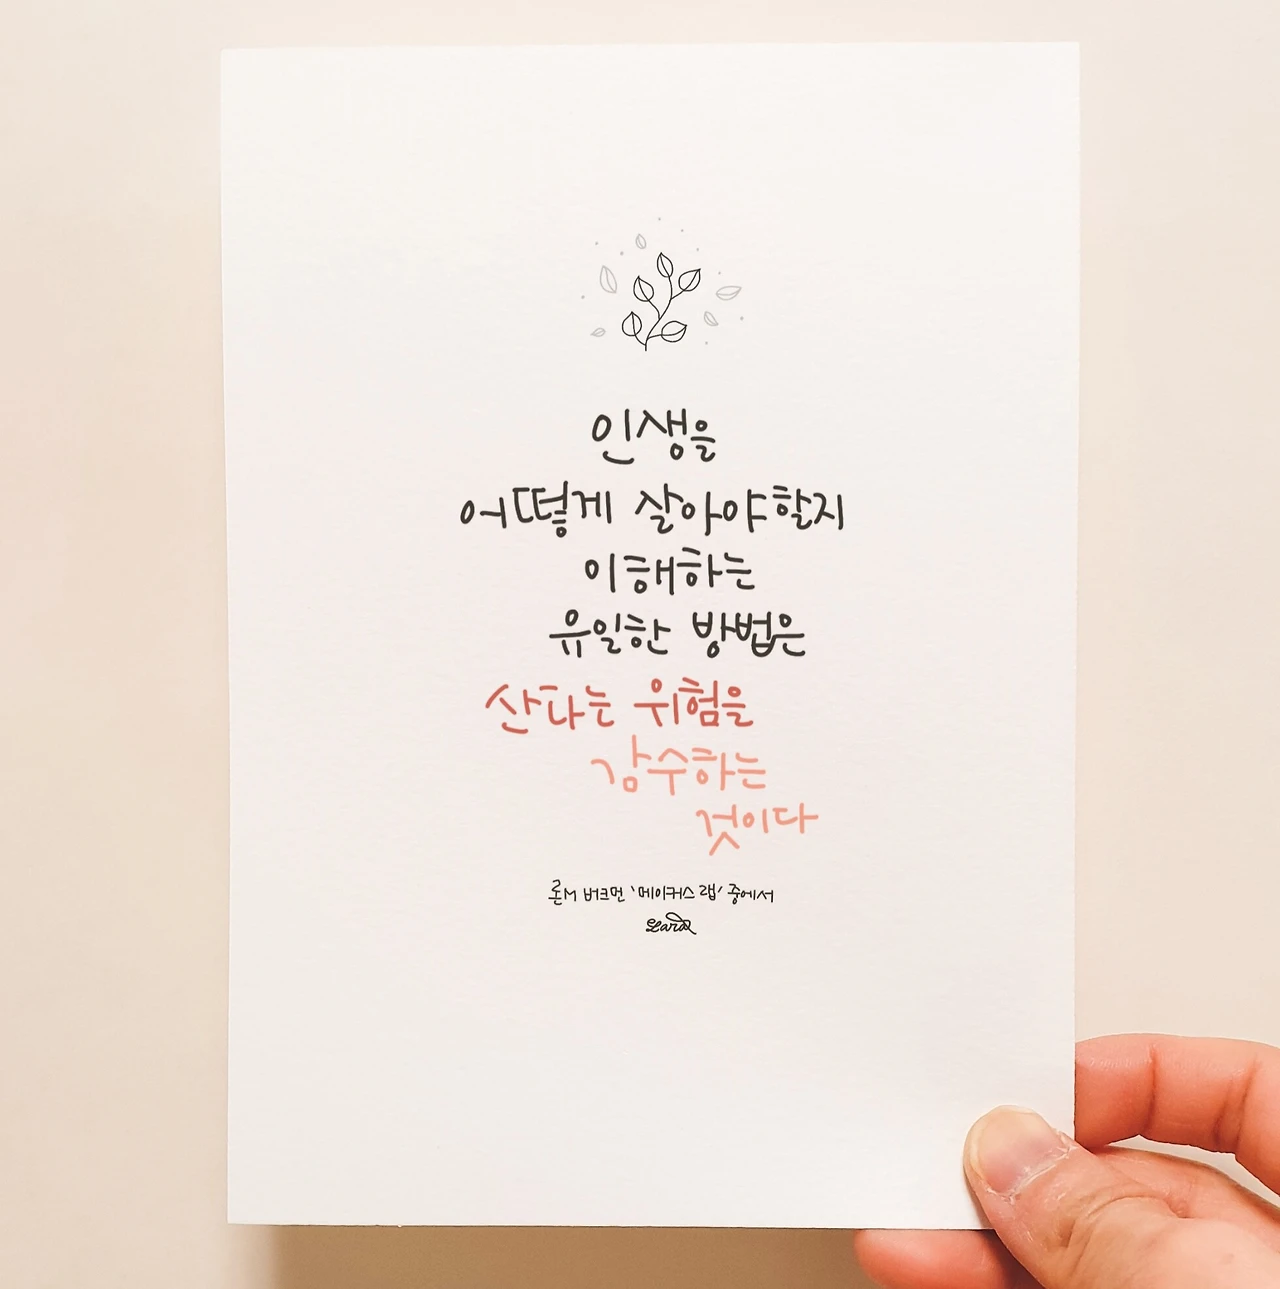 인생을
어떻게 살아야할지
이해하는
유일한 방법은
산다는 위험을
감수하는
것이다
론M 버크먼 '메이커스 랩' 중에서